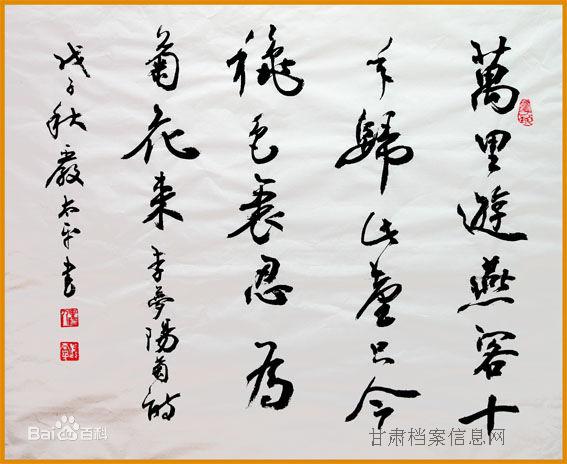 萬里遊燕客十
年歸此臺只今
穐色裏忍為
菊花来 李夢陽菊詩
戊子秋嚴太平書
Bai百科
甘肃档案信息网